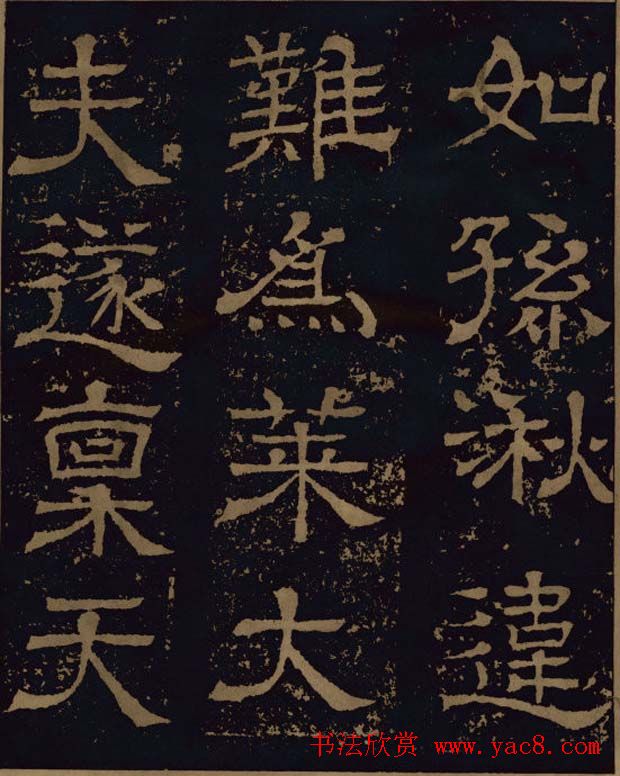 如孫湫違
難爲萊大
夫遂稟天
书法欣赏 www.yac8.com